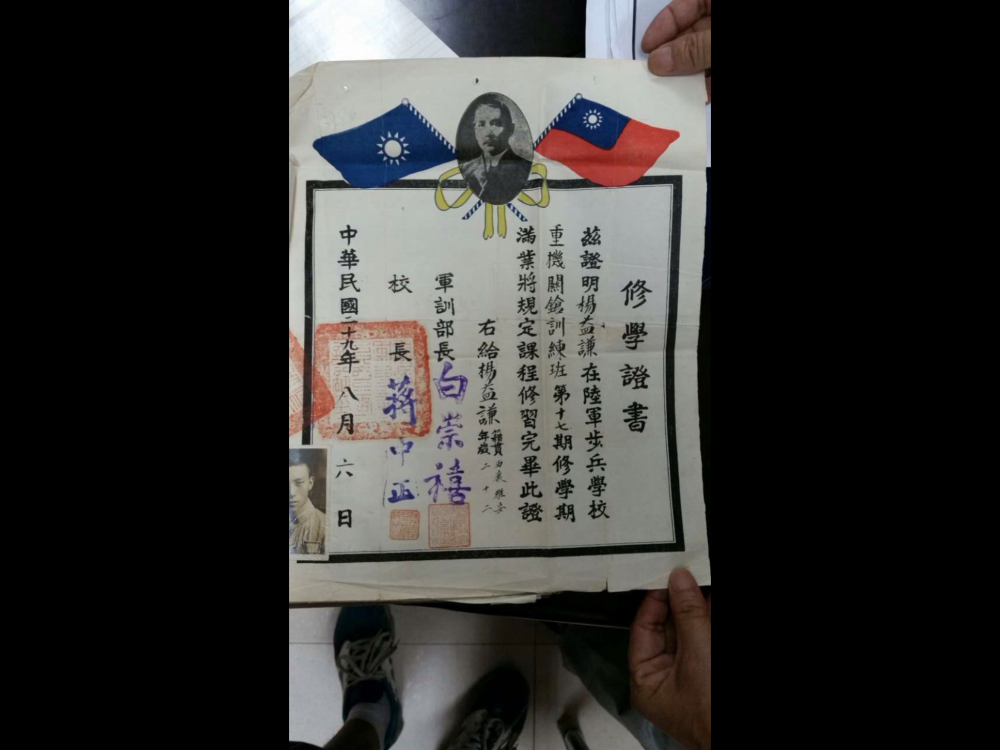 修學證書
茲證明楊益謙在陸軍步兵學校
重機關鎗訓練班第十七期修學期
滿業將規定課程修習完畢此證
右給楊益謙
籍貫西康雅安
年歲二十二
軍訓部長白崇禧
校長蔣中正
中華民國二十九年八月六日